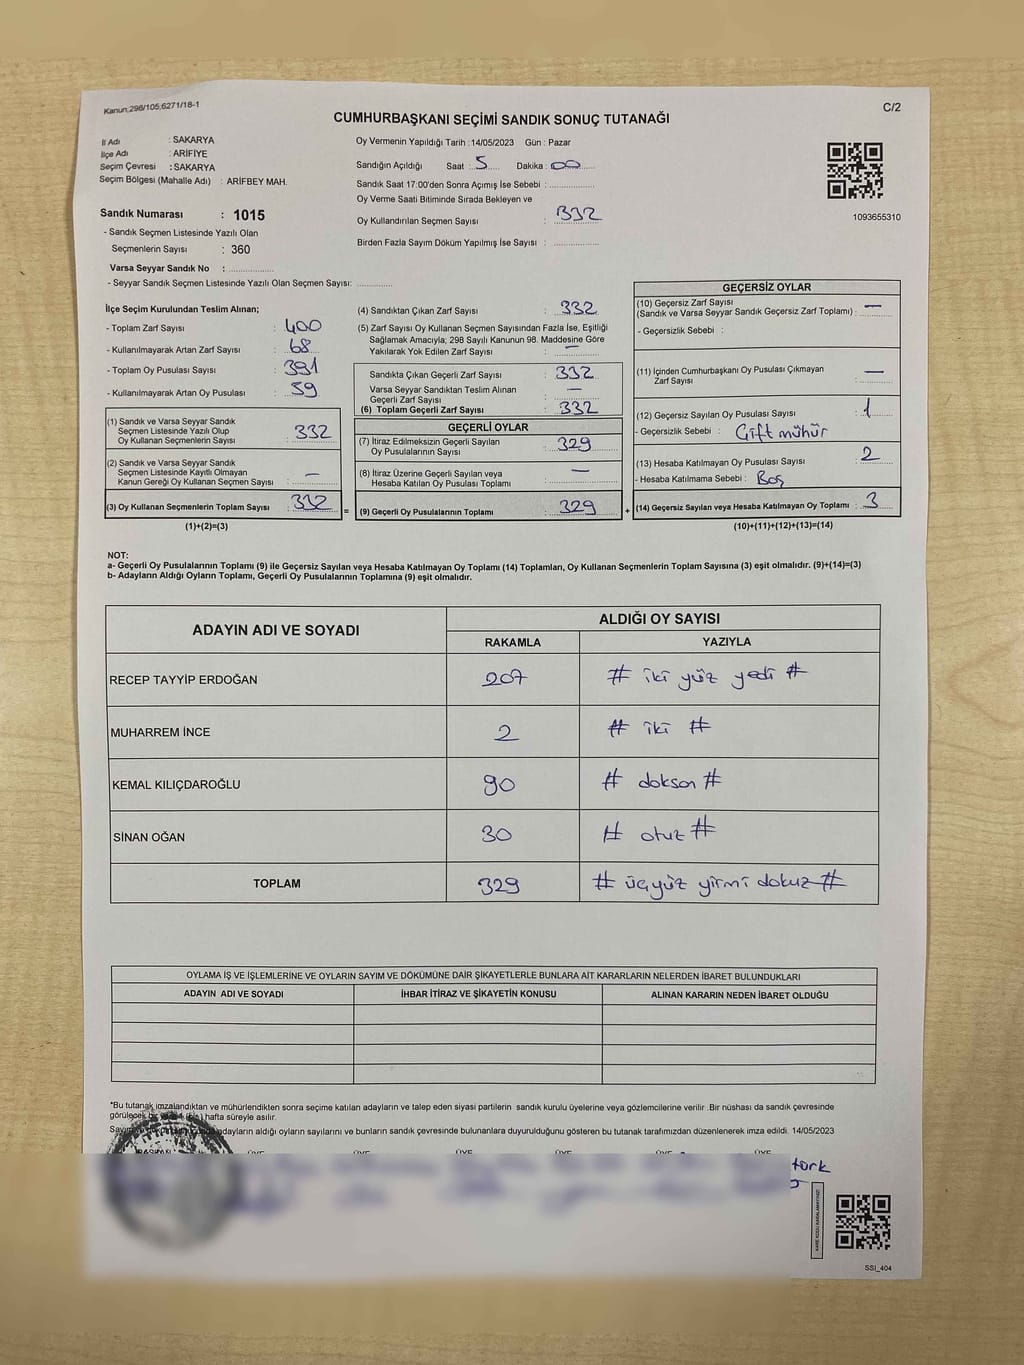 Kanun;298/105;6271/18-1
C/2
CUMHURBAŞKANI SEÇİMİ SANDIK SONUÇ TUTANAĞI
İl Adı : SAKARYA
İlçe Adı : ARİFİYE
Seçim Çevresi : SAKARYA
Seçim Bölgesi (Mahalle Adı) : ARİFBEY MAH.
Sandık Numarası : 1015
- Sandık Seçmen Listesinde Yazılı Olan
Seçmenlerin Sayısı : 360
Varsa Seyyar Sandık No :
- Seyyar Sandık Seçmen Listesinde Yazılı Olan Seçmen Sayısı:
Oy Vermenin Yapıldığı Tarih : 14/05/2023 Gün : Pazar
Sandığın Açıldığı Saat : 5 Dakika : 00
Sandık Saat 17:00'den Sonra Açımış İse Sebebi :
Oy Verme Saati Bitiminde Sırada Bekleyen ve
Oy Kullandırılan Seçmen Sayısı : 332
Birden Fazla Sayım Döküm Yapılmış İse Sayısı :
1093655310
İlçe Seçim Kurulundan Teslim Alınan;
- Toplam Zarf Sayısı : 400
- Kullanılmayarak Artan Zarf Sayısı : 68
- Toplam Oy Pusulası Sayısı : 391
- Kullanılmayarak Artan Oy Pusulası : 59
(1) Sandık ve Varsa Seyyar Sandık
Seçmen Listesinde Yazılı Olup
Oy Kullanan Seçmenlerin Sayısı : 332
(2) Sandık ve Varsa Seyyar Sandık
Seçmen Listesinde Kayıtlı Olmayan
Kanun Gereği Oy Kullanan Seçmen Sayısı : —
(3) Oy Kullanan Seçmenlerin Toplam Sayısı : 332
(1)+(2)=(3)
(4) Sandıktan Çıkan Zarf Sayısı : 332
(5) Zarf Sayısı Oy Kullanan Seçmen Sayısından Fazla İse, Eşitliği
Sağlamak Amacıyla; 298 Sayılı Kanunun 98. Maddesine Göre
Yakılarak Yok Edilen Zarf Sayısı : —
Sandıkta Çıkan Geçerli Zarf Sayısı : 332
Varsa Seyyar Sandıktan Teslim Alınan
Geçerli Zarf Sayısı : —
(6) Toplam Geçerli Zarf Sayısı : 332
GEÇERLİ OYLAR
(7) İtiraz Edilmeksizin Geçerli Sayılan
Oy Pusulalarının Sayısı : 329
(8) İtiraz Üzerine Geçerli Sayılan veya
Hesaba Katılan Oy Pusulası Toplamı : —
= (9) Geçerli Oy Pusulalarının Toplamı : 329
GEÇERSİZ OYLAR
(10) Geçersiz Zarf Sayısı
(Sandık ve Varsa Seyyar Sandık Geçersiz Zarf Toplamı) : —
- Geçersizlik Sebebi :
(11) İçinden Cumhurbaşkanı Oy Pusulası Çıkmayan
Zarf Sayısı : —
(12) Geçersiz Sayılan Oy Pusulası Sayısı : 1
- Geçersizlik Sebebi : Çift mühür
(13) Hesaba Katılmayan Oy Pusulası Sayısı : 2
- Hesaba Katılmama Sebebi : Boş
+ (14) Geçersiz Sayılan veya Hesaba Katılmayan Oy Toplamı : 3
(10)+(11)+(12)+(13)=(14)
NOT:
a- Geçerli Oy Pusulalarının Toplamı (9) ile Geçersiz Sayılan veya Hesaba Katılmayan Oy Toplamı (14) Toplamları, Oy Kullanan Seçmenlerin Toplam Sayısına (3) eşit olmalıdır. (9)+(14)=(3)
b- Adayların Aldığı Oyların Toplamı, Geçerli Oy Pusulalarının Toplamına (9) eşit olmalıdır.
ADAYIN ADI VE SOYADI
ALDIĞI OY SAYISI
RAKAMLA YAZIYLA
RECEP TAYYİP ERDOĞAN 207 # iki yüz yedi #
MUHARREM İNCE 2 # iki #
KEMAL KILIÇDAROĞLU 90 # doksan #
SİNAN OĞAN 30 # otuz #
TOPLAM 329 # üçyüz yirmi dokuz #
OYLAMA İŞ VE İŞLEMLERİNE VE OYLARIN SAYIM VE DÖKÜMÜNE DAİR ŞİKAYETLERLE BUNLARA AİT KARARLARIN NELERDEN İBARET BULUNDUKLARI
ADAYIN ADI VE SOYADI İHBAR İTİRAZ VE ŞİKAYETİN KONUSU ALINAN KARARIN NEDEN İBARET OLDUĞU
*Bu tutanak imzalandıktan ve mühürlendikten sonra seçime katılan adayların ve talep eden siyasi partilerin sandık kurulu üyelerine veya gözlemcilerine verilir .Bir nüshası da sandık çevresinde
görülecek bir hafta süreyle asılır.
adayların aldığı oyların sayılarını ve bunların sandık çevresinde bulunanlara duyurulduğunu gösteren bu tutanak tarafımızdan düzenlenerek imza edildi. 14/05/2023
ÜYE ÜYE ÜYE ÜYE ÜYE ÜYE
türk
SSI_404